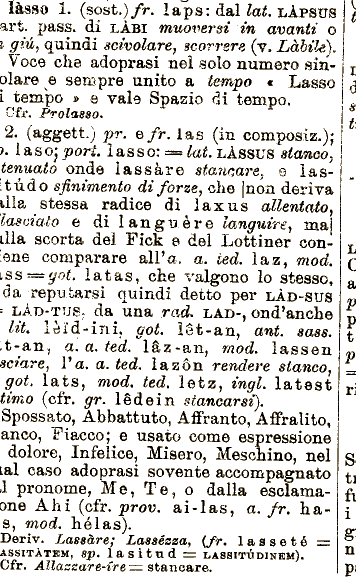 làsso 1. (sost.) fr. laps: dal lat. LÀPSUS
art. pass. di LÀBI muoversi in avanti o
n giù, quindi scivolare, scorrere (v. Làbile).
Voce che adoprasi nel solo numero sin-
olare e sempre unito a tempo « Lasso
i tempo » e vale Spazio di tempo.
Cfr. Prolasso.
2. (aggett.) pr. e fr. las (in composiz.);
p. laso; port. lasso: = lat. LÀSSUS stanco,
tenuato onde lassàre stancare, e las-
itúdo sfinimento di forze, che |non deriva
alla stessa radice di laxus allentato,
lasciato e di languère languire, ma|
ulla scorta del Fick e del Lottiner con-
iene comparare all'a. a. ted. laz, mod.
ass = got. latas, che valgono lo stesso,
da reputarsi quindi detto per LÀD-SUS
= LÀD-TUS, da una rad. LAD-, ond'anche
lit. lèid-ini, got. lêt-an, ant. sass.
t-an, a. a. ted. lâz-an, mod. lassen
sciare, l'a. a. ted. lazôn rendere stanco,
got. lats, mod. ted. letz, ingl. latest
timo (cfr. gr. lêdein stancarsi).
Spossato, Abbattuto, Affranto, Affralito,
anco, Fiacco; e usato come espressione
dolore, Infelice, Misero, Meschino, nel
ual caso adoprasi sovente accompagnato
l pronome, Me, Te, o dalla esclama-
one Ahi (cfr. prov. ai-las, a. fr. ha-
s, mod. hélas).
Deriv. Lassàre; Lassézza, (fr. lasseté =
ASSITÀTEM, sp. lasitud = LASSITÚDINEM).
Cfr. Allazzare-íre = stancare.